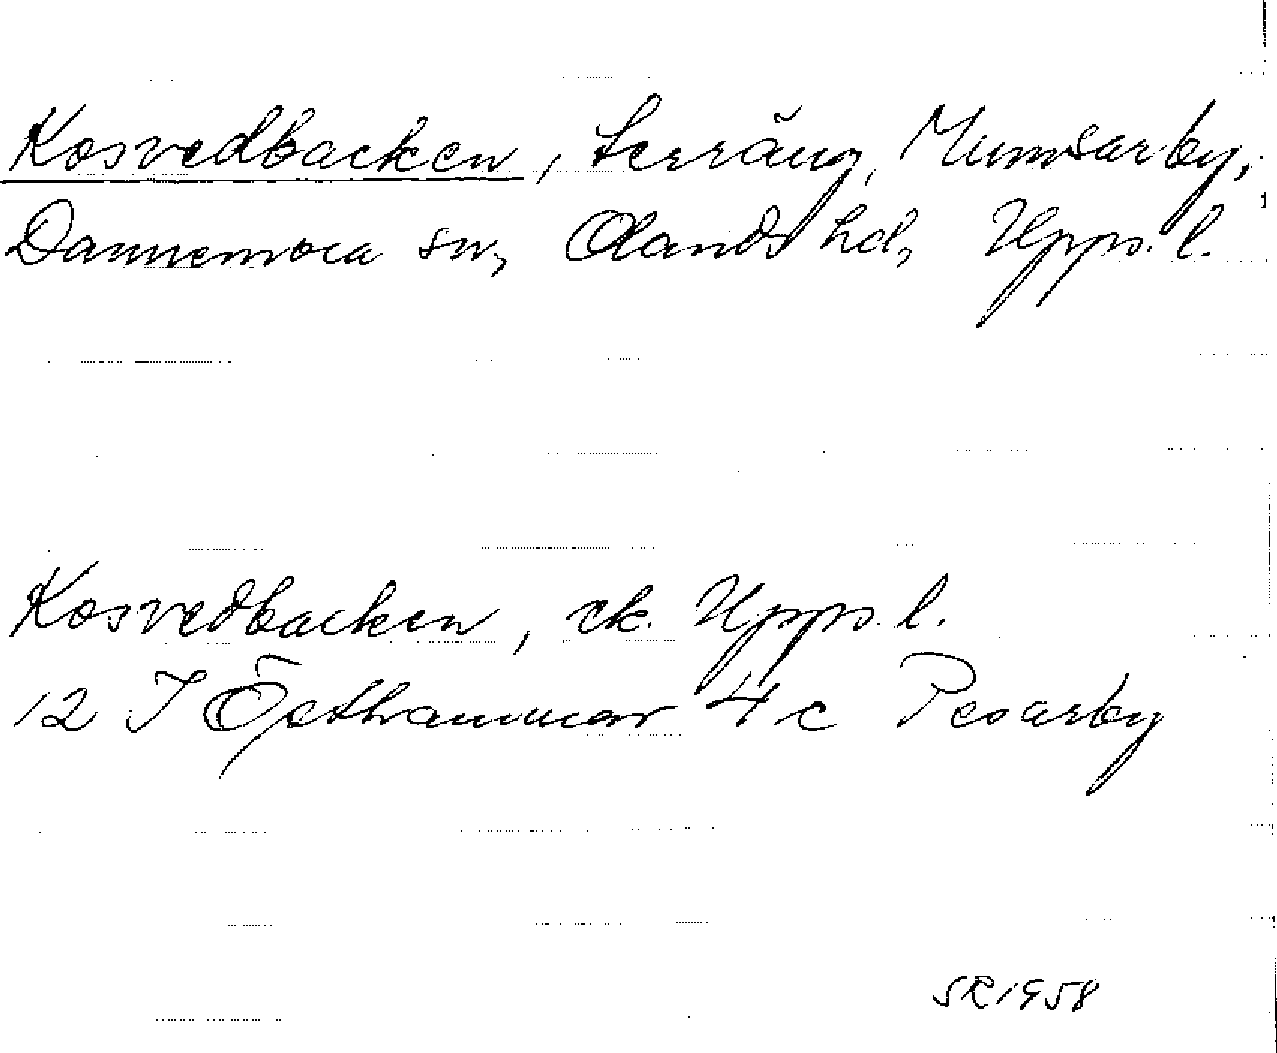 Kosvedbacken, terräng, Mumsarby,
Dannemora sn, Olands hd, Upps. l.
Kosvedbacken, ek. Upps. l.
12 I Östhammar 4 c Pesarby
SR 1958